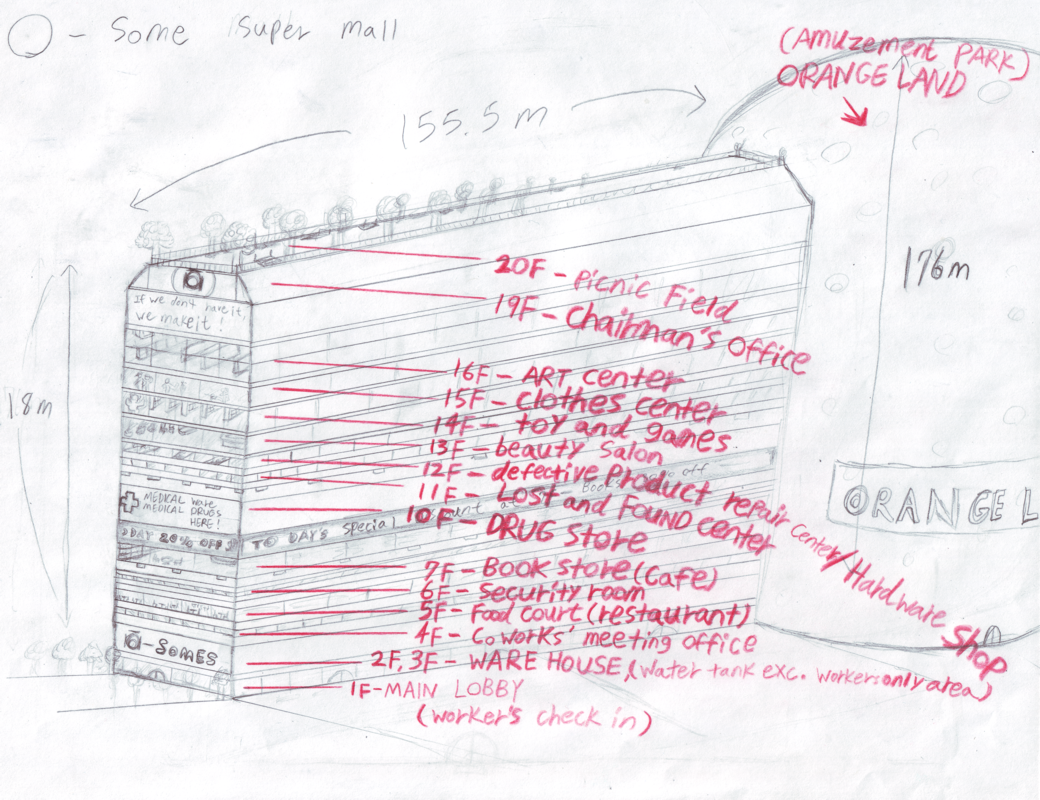 - Some super mall
(AMUZEMENT PARK)
ORANGE LAND
155.5 m
176m
If we don't have it,
we make it!
20F - Picnic Field
19F - Chairman's office
16F - ART center
15F - clothes center
14F - toy and games
13F - beauty salon
12F - defective Product repair center/Hardware Shop
11F - Lost and Found center
10F - DRUG Store
MEDICAL Ware
MEDICAL DRUGS
HERE!
20% OFF
TO DAY'S special
off
7F - Book store (Cafe)
6F - Security room
5F - Food court (restaurant)
4F - Co works' meeting office
2F, 3F - WARE HOUSE, (Water tank exc. workers only area)
1F - MAIN LOBBY
(worker's check in)
-SOMES
ORANGE L